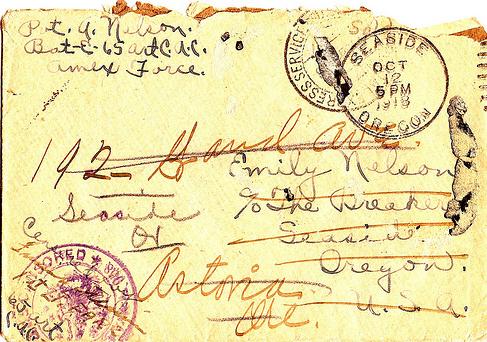 Pvt. G. Nelson.
Bat-E-65 art C.A.C.
Amex Force.
PRESS SERVICE
SEASIDE
OCT
12
5 PM
1918
OREGON
192 Ave
Emily Nelson
c/o The Breakers
Seaside
Oregon.
U.S.A.
Seaside
Or
Astoria
Ore.
CENSORED
65 art
C.A.C.